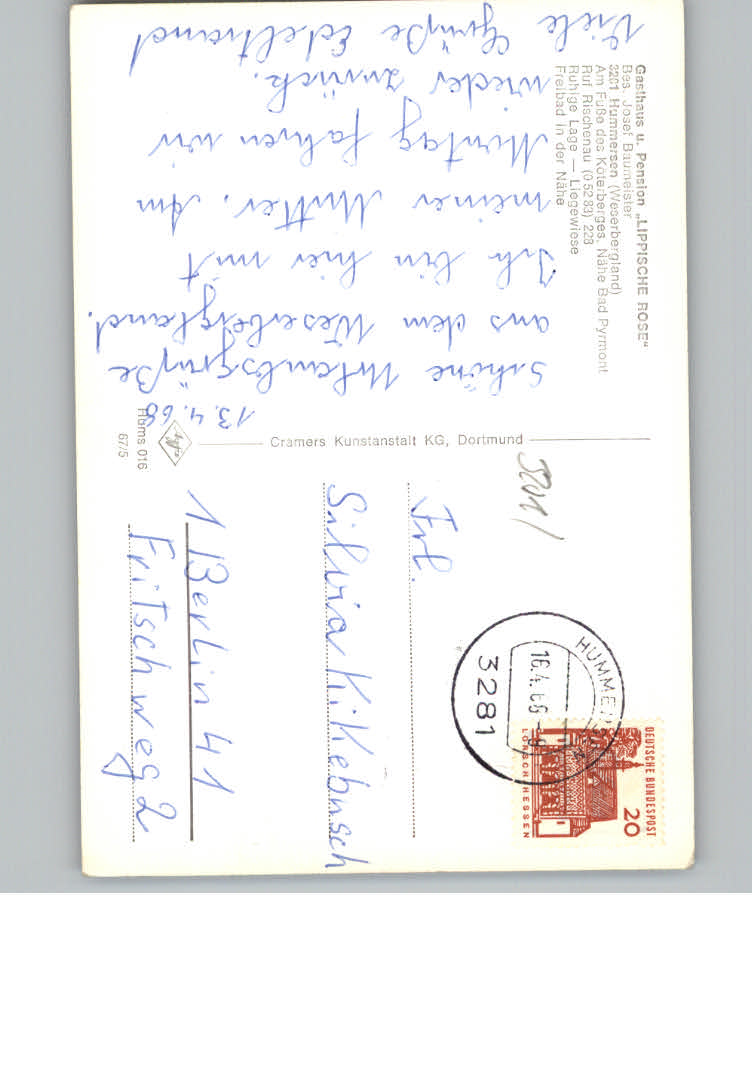 Gasthaus u. Pension „LIPPISCHE ROSE“
Bes. Josef Baumeister
3281 Hummersen (Weserbergland)
Am Fuße des Köterberges, Nähe Bad Pyrmont
Ruf Rischenau (0 52 83) 223
Ruhige Lage — Liegewiese
Freibad in der Nähe
13.4.68
Schöne Urlaubsgrüße
aus dem Weserbergland.
Ich bin hier mit
meiner Mutter. Am
Montag fahren wir
wieder zurück.
Viele Grüße Edeltraud
Cramers Kunstanstalt KG, Dortmund
Agfa
Hums 016
67/5
DEUTSCHE BUNDESPOST
20
LORSCH HESSEN
3281
16.4.68
Frl.
Silvia Kikebusch
1 Berlin 41
Fritschweg 2